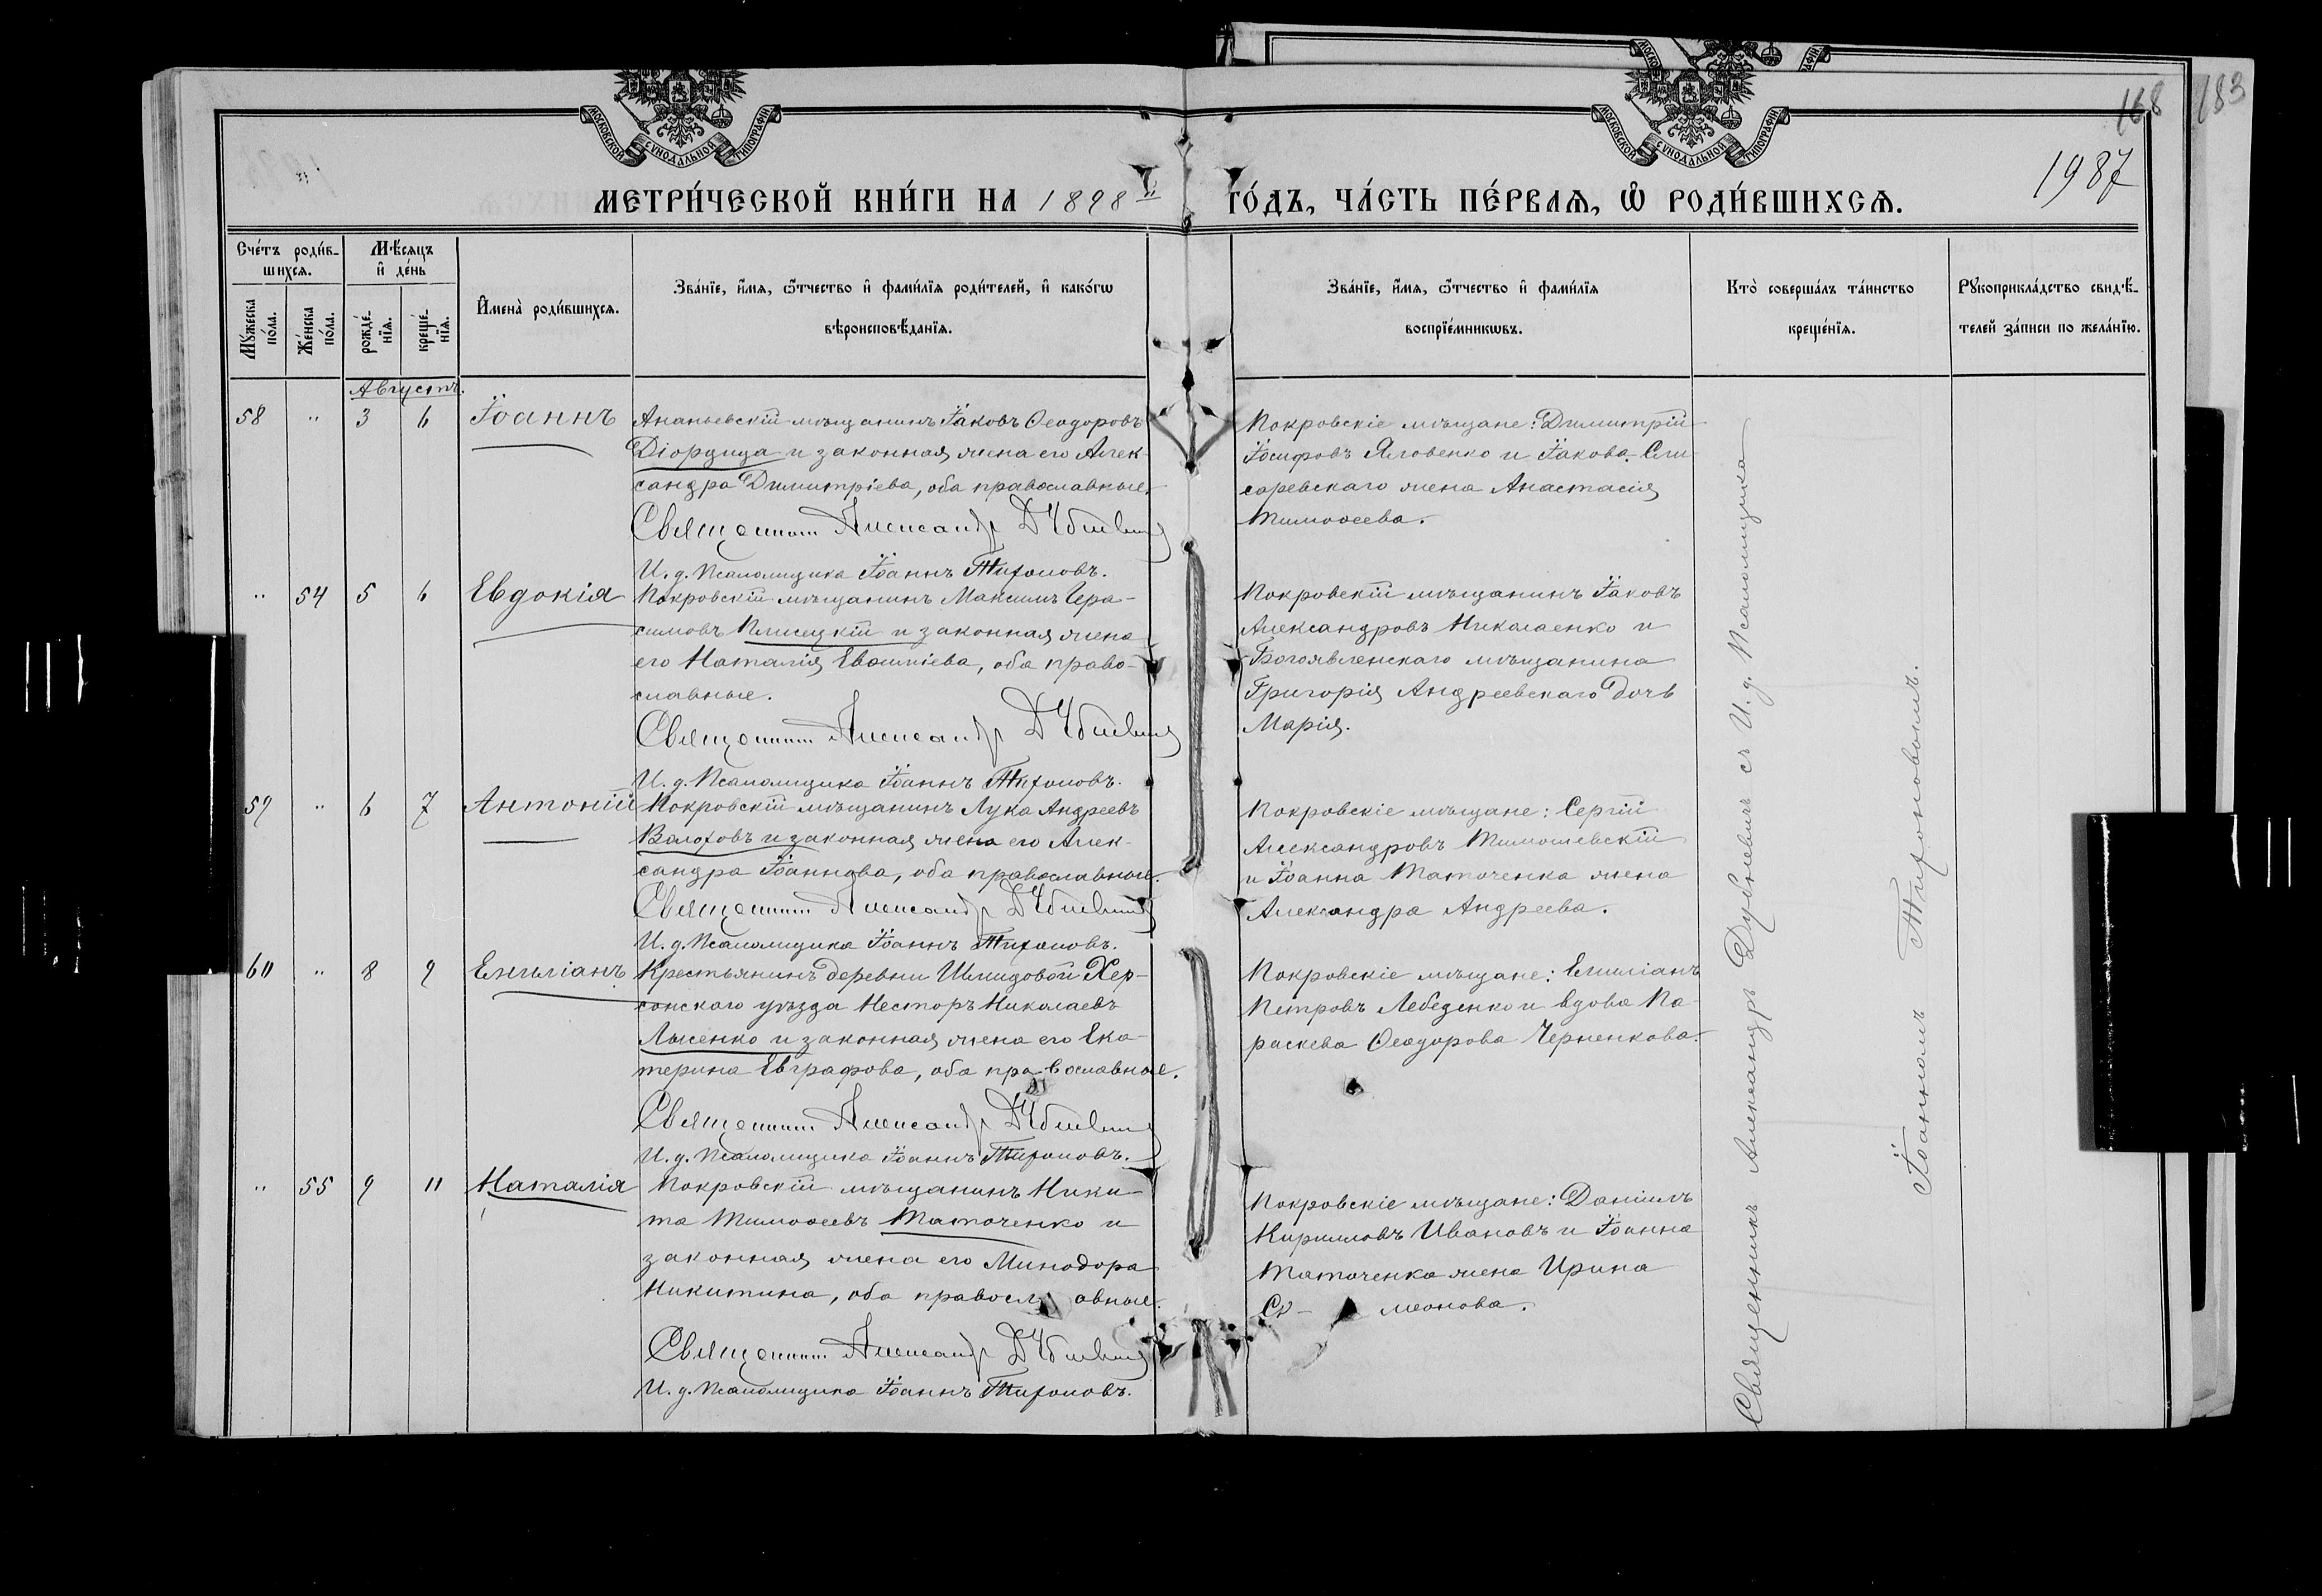 168
183
1987
МОСКОВСКОЙ СѴНОДАЛЬНОЙ ТИПОГРАФІИ
МОСКОВСКОЙ СѴНОДАЛЬНОЙ ТИПОГРАФІИ
МЕТРИ́ЧЕСКОЙ КНИ́ГИ НА 1898 й ГО́ДЪ, ЧА́СТЬ ПЕ́РВАЯ, Ѡ҆ РОДИ́ВШИХСЯ.
Сче́тъ роди́в-
шихся.
Мѣ́сяцъ
и҆ де́нь
Мꙋ́жеска
по́ла.
Же́нска
по́ла.
рожде́-
нїя.
креще́-
нїя.
И҆мена̀ роди́вшихся.
Зва́нїе, и҆́мя, ѻ҆́тчество и҆ фами́лїя роди́телей, и҆ како́гѡ
вѣроисповѣ́данїя.
Зва́нїе, и҆́мя, ѻ҆́тчество и҆ фами́лїя
воспрїе́мникѡвъ.
Кто̀ соверша́лъ та́инство
креще́нїя.
Рꙋкоприкла́дство свидѣ́-
телей за́писи по жела́нїю.
Августъ.
58 " 3 6 Іоаннъ
Ананьевскій мѣщанинъ Іаковъ Ѳеодоровъ
Діордица и законная жена его Алек-
сандра Димитріева, оба православные.
Священникъ Александръ Дубневичъ
И. д. Псаломщика Іоаннъ Тихоновъ.
Покровскіе мѣщане: Димитрій
Іосифовъ Яловенко и Іакова Сли-
саревскаго жена Анастасія
Тимоѳеева.
" 54 5 6 Евдокія
Покровскій мѣщанинъ Максимъ Гера-
симовъ Плисецкій и законная жена
его Наталія Евтихіева, оба право-
славные.
Священникъ Александръ Дубневичъ
И. д. Псаломщика Іоаннъ Тихоновъ.
Покровскій мѣщанинъ Іаковъ
Александровъ Николаенко и
Богоявленскаго мѣщанина
Григорія Андреевскаго дочь
Марія.
59 " 6 7 Антоній
Покровскій мѣщанинъ Лука Андреевъ
Волоховъ и законная жена его Алек-
сандра Іоаннова, оба православные.
Священникъ Александръ Дубневичъ
И. д. Псаломщика Іоаннъ Тихоновъ.
Покровскіе мѣщане: Сергій
Александровъ Тимошевскій
и Іоанна Таточенка жена
Александра Андреева.
60 " 8 9 Емиліанъ
Крестьянинъ деревни Шмидовой Хер-
сонскаго уѣзда Несторъ Николаевъ
Лысенко и законная жена его Ека-
терина Евграфова, оба православные.
Священникъ Александръ Дубневичъ
И. д. Псаломщика Іоаннъ Тихоновъ.
Покровскіе мѣщане: Емиліанъ
Петровъ Лебеденко и вдова Па-
раскева Ѳеодорова Черненкова.
" 55 9 11 Наталія
Покровскій мѣщанинъ Ники-
та Тимоѳеевъ Таточенко и
законная жена его Минодора
Никитина, оба православные.
Священникъ Александръ Дубневичъ
И. д. Псаломщика Іоаннъ Тихоновъ.
Покровскіе мѣщане: Даніилъ
Кирилловъ Ивановъ и Іоанна
Таточенка жена Ирина
меонова.
Священникъ Александръ Дубневичъ съ И. д. Псаломщика
Іоанномъ Тихоновымъ.